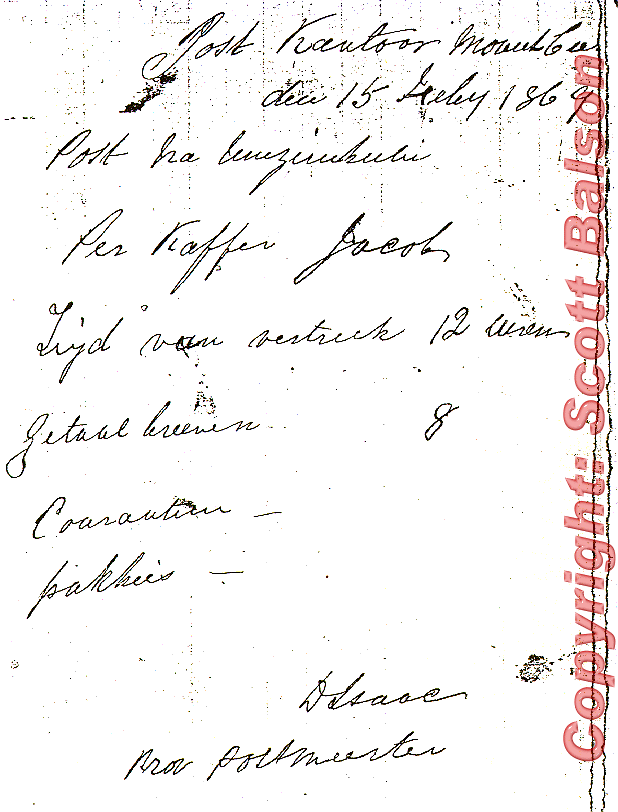 Post Kantoor Mount Cu
den 15 July 1869
Post na Umzimkulu
Per Kaffer Jacob
Tijd van vertrek 12 uren
Getaal brieven 8
Couranten —
pakkies —
D Isaac
Prov postmeester
Copyright: Scott Balson